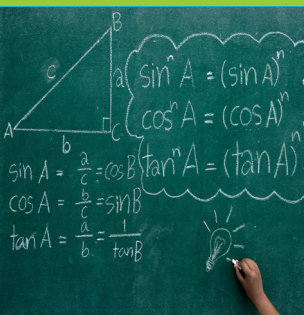 B
c
a
A
b
C
sinⁿ A = (sin A)ⁿ
cosⁿ A = (cos A)ⁿ
tanⁿ A = (tan A)ⁿ
sin A = a/c = cos B
cos A = b/c = sin B
tan A = a/b = 1/tan B